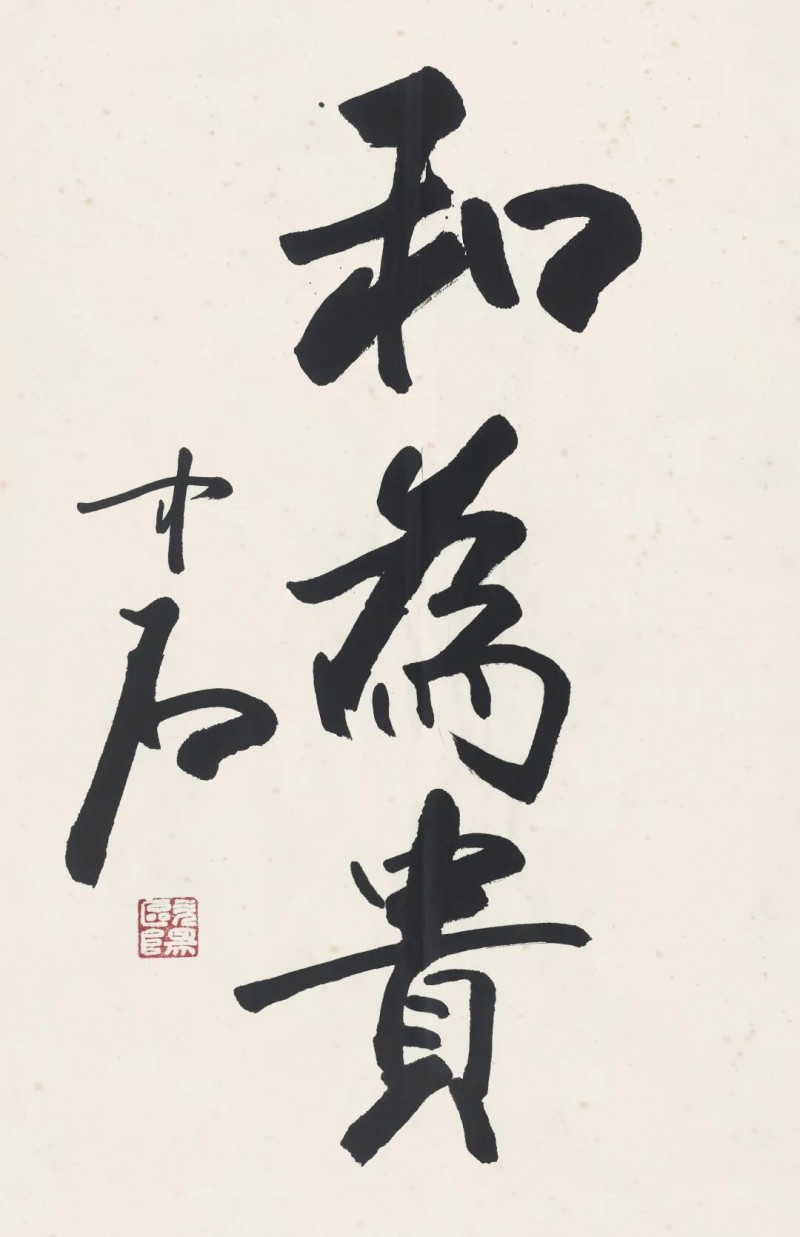 和為貴
中石